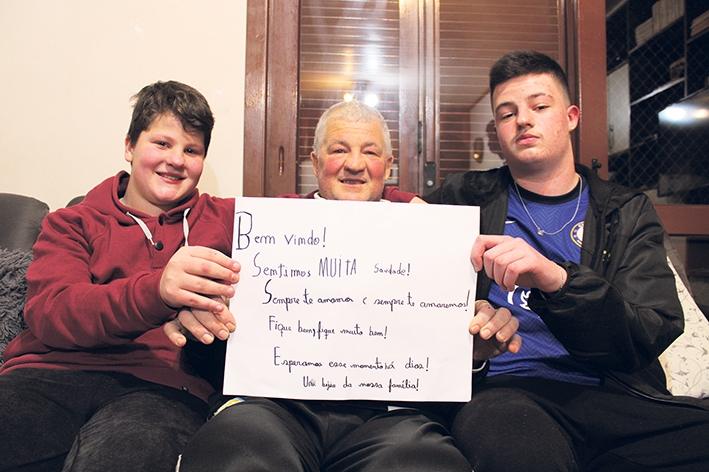 Bem vimdo!
Semtimos MUITA saudade!
Sempre te amamos e sempre te amaremos!
Fique bem, fique muito bem!
Esperamos esse momento há dias!
Um beijão da nossa família!